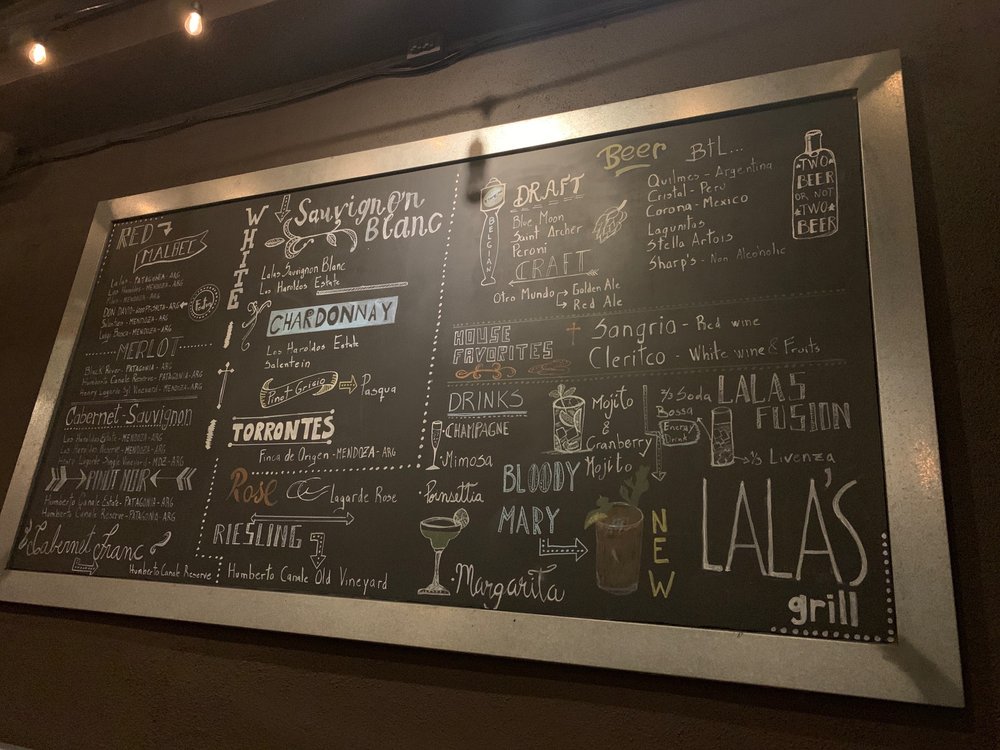 RED
MALBEC
Lalas - PATAGONIA - ARG
Los Haroldos - MENDOZA - ARG
MENDOZA - ARG
DON DAVID ARG
Salentein - MENDOZA - ARG
Luigi Bosca - MENDOZA - ARG
MERLOT
Black River - PATAGONIA - ARG
Humberto Canale Reserve - PATAGONIA - ARG
Henry Lagarde MENDOZA - ARG
Cabernet-Sauvignon
Los Haroldos Estate - MENDOZA - ARG
Los Haroldos Reserve - MENDOZA - ARG
Henry Lagarde Single Vineyard - MDZ - ARG
PINOT NOIR
Humberto Canale Estate - PATAGONIA - ARG
Humberto Canale Reserve - PATAGONIA - ARG
Cabernet Franc
Humberto Canale Reserve
WHITE
Sauvignon
Blanc
Lalas Sauvignon Blanc
Los Haroldos Estate
CHARDONNAY
Los Haroldos Estate
Salentein
Pinot Grigio
Pasqua
TORRONTES
Finca de Origen - MENDOZA - ARG
Rose
Lagarde Rose
RIESLING
Humberto Canale Old Vineyard
Beer
DRAFT
BELGIAN
Blue Moon
Saint Archer
Peroni
CRAFT
Otro Mundo
Golden Ale
Red Ale
BtL...
Quilmes - Argentina
Cristal - Peru
Corona - Mexico
Lagunitas
Stella Artois
Sharp's - Non Alcoholic
TWO
BEER
OR NOT
TWO
BEER
HOUSE
FAVORITES
Sangria - Red wine
Cleritco - White wine & Fruits
DRINKS
CHAMPAGNE
Mimosa
Poinsettia
Margarita
Mojito
&
Cranberry
Mojito
BLOODY
MARY
NEW
LALAS
FUSION
2/3 Soda
Bossa
Energy
Drink
1/3 Livenza
LALA'S
grill